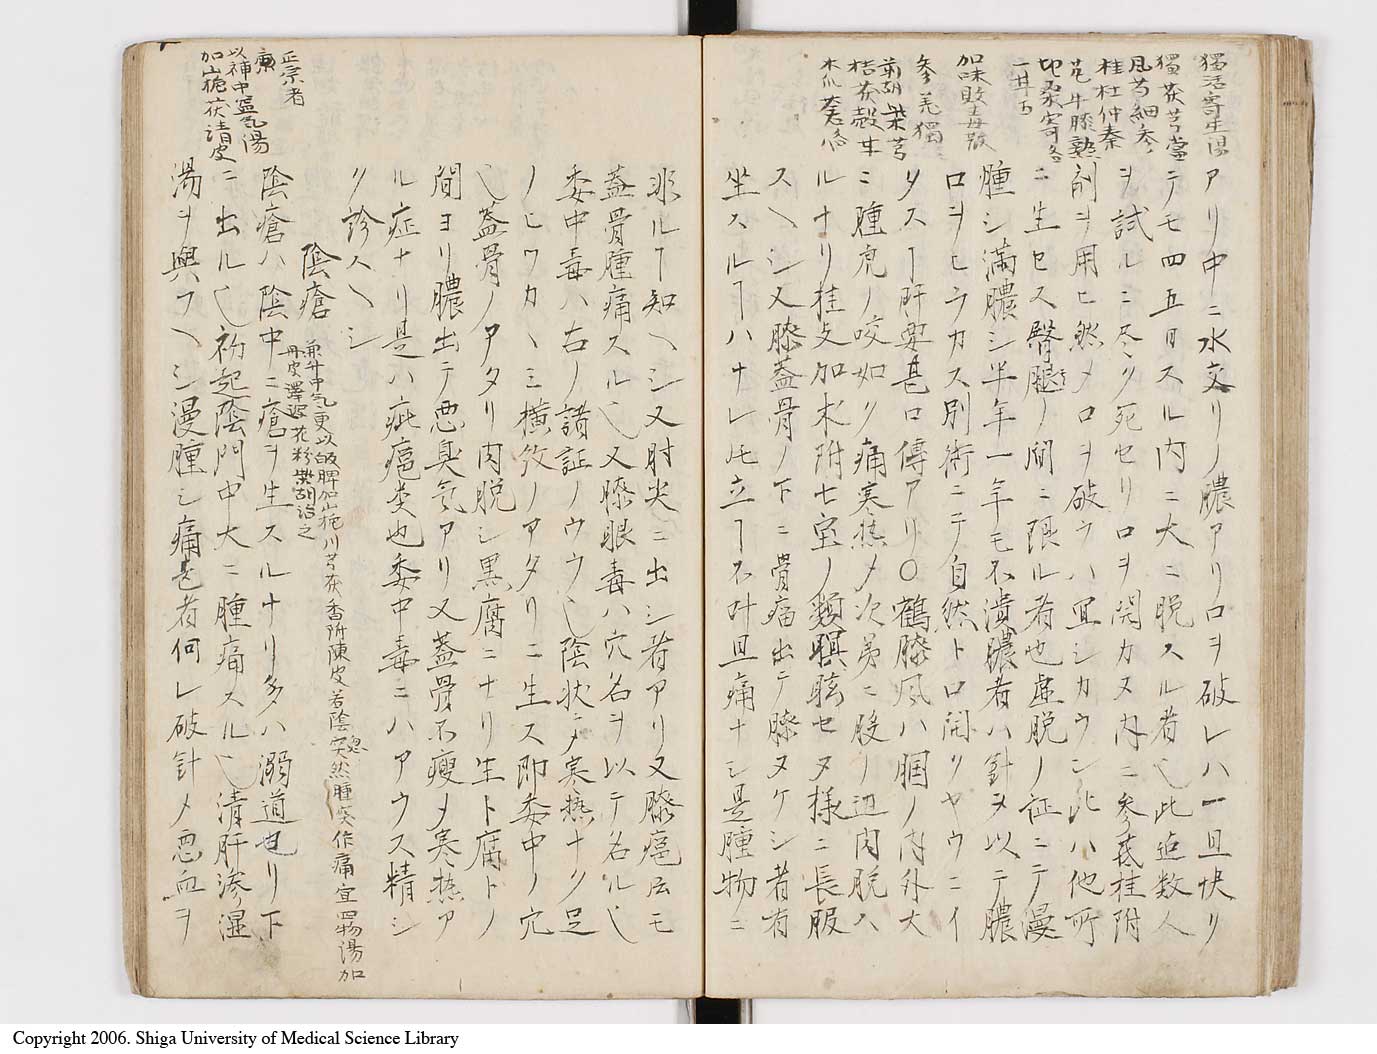 獨活寄生湯
獨茯芎當
風芍細参
桂杜仲秦
艽牛膝熟
加味敗毒散
参羌獨
前胡柴芎
桔茯殻甘
アリ中ニ水交リノ膿アリ口ヲ破レハ一旦快リ
テモ四五日スル内ニ大ニ脱スル者也此迠数人
ヲ試ルニ尽ク死セリ口ヲ開カヌ内ニ参芪桂附
剤ヲ用ヒ然メ口ヲ破ラハ宜シカラン此ハ他所
ニ生セス臀腿ノ間ニ限ル者也虚脱ノ証ニテ漫
腫シ満膿シ半年一年モ不潰膿者ハ針ヲ以テ膿
口ヲヒラカス別術ニテ自然ト口開クヤウニイ
タスヿ肝要甚口傳アリ〇鶴膝風ハ膕ノ内外大
ニ腫虎ノ咬如ク痛寒熱メ次第ニ股ノ辺肉脱ス
ルナリ桂支加朮附七宝ノ類瞑眩セヌ様ニ長服
スヘシ又膝蓋骨ノ下ニ骨瘤出テ膝ヌケシ者有
坐スルヿハナレ𪜈立ヿ不叶且痛ナシ是腫物ニ
非ルヿ知ヘシ又肘尖ニ出シ者アリ又膝疱云モ
蓋骨腫痛スル也又膝眼毒ハ穴名ヲ以テ名ル也
委中毒ハ右ノ諸証ノウラ也陰状ニメ寒熱ナク足
ノヒツカヽミ横紋ノアタリニ生ス即委中ノ穴
也蓋骨ノアタリ肉脱シ黒腐ニナリ生ト腐トノ
間ヨリ膿出テ悪臭気アリ又蓋骨不痩メ寒熱ア
ル症ナリ是ハ疵瘡类也委中毒ニハアラス精シ
ク診スヘシ
陰瘡
兼升中气更以皈脾加山梔川芎茯香附陳皮若陰突忽然腫突作痛宜四物湯加
丹皮澤瀉花粉柴胡治之
陰瘡ハ陰中ニ瘡ヲ生スルナリ多ハ溺道也リ下
ニ出ル也初起陰門中大ニ腫痛スル也清肝滲湿
湯ヲ與フヘシ漫腫シ痛甚者何レ破針メ悪血ヲ
正宗者
以補中益气湯
加山梔茯請皮